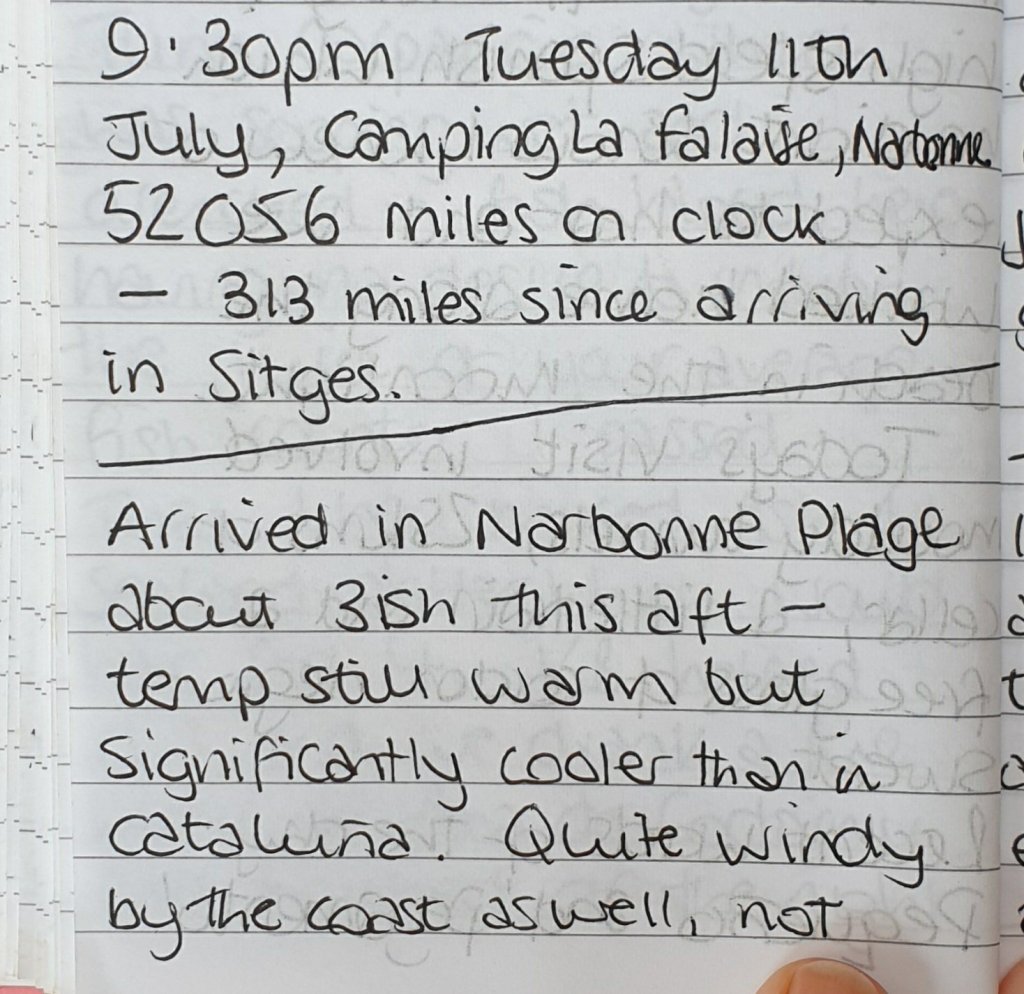 9.30pm Tuesday 11th
July, Camping La falaise, Narbonne
52056 miles on clock
- 313 miles since arriving
in Sitges.
Arrived in Narbonne Plage
about 3ish this aft -
temp still warm but
significantly cooler than in
Cataluña. Quite windy
by the coast as well, not